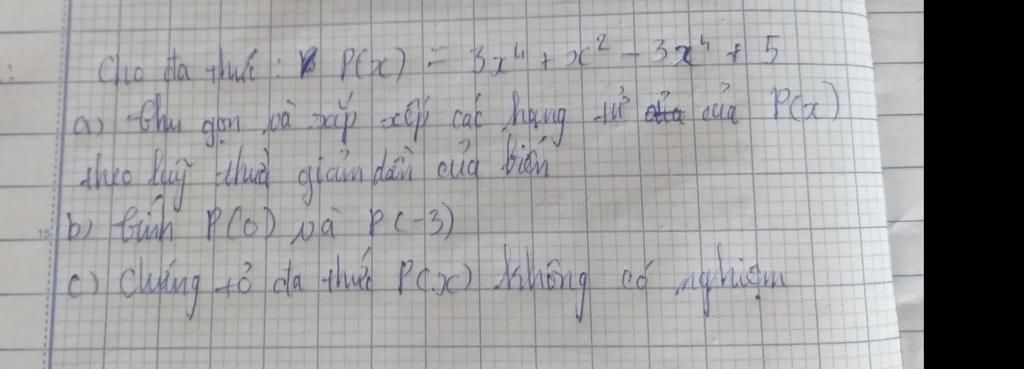 Cho đa thức : P(x) = 3x⁴ + x² - 3x⁴ + 5
a) Thu gọn và xắp xếp các hạng tử của P(x)
theo luỹ thừa giảm dần của biến
b) tính P(0) và P(-3)
c) Chứng tỏ đa thức P(x) không có nghiệm